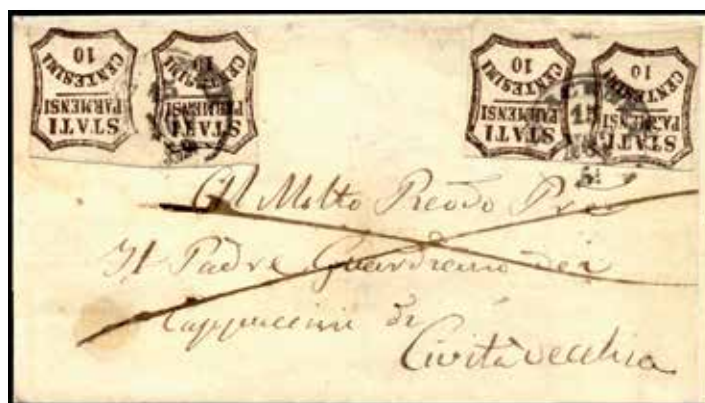 STATI PARMENSI CENTESIMI 10
STATI PARMENSI CENTESIMI 10
STATI PARMENSI CENTESIMI 10
STATI PARMENSI CENTESIMI 10
Al Molto Revdo Pre
Il Padre Guardiano dei
Cappuccini di
Civitàvecchia